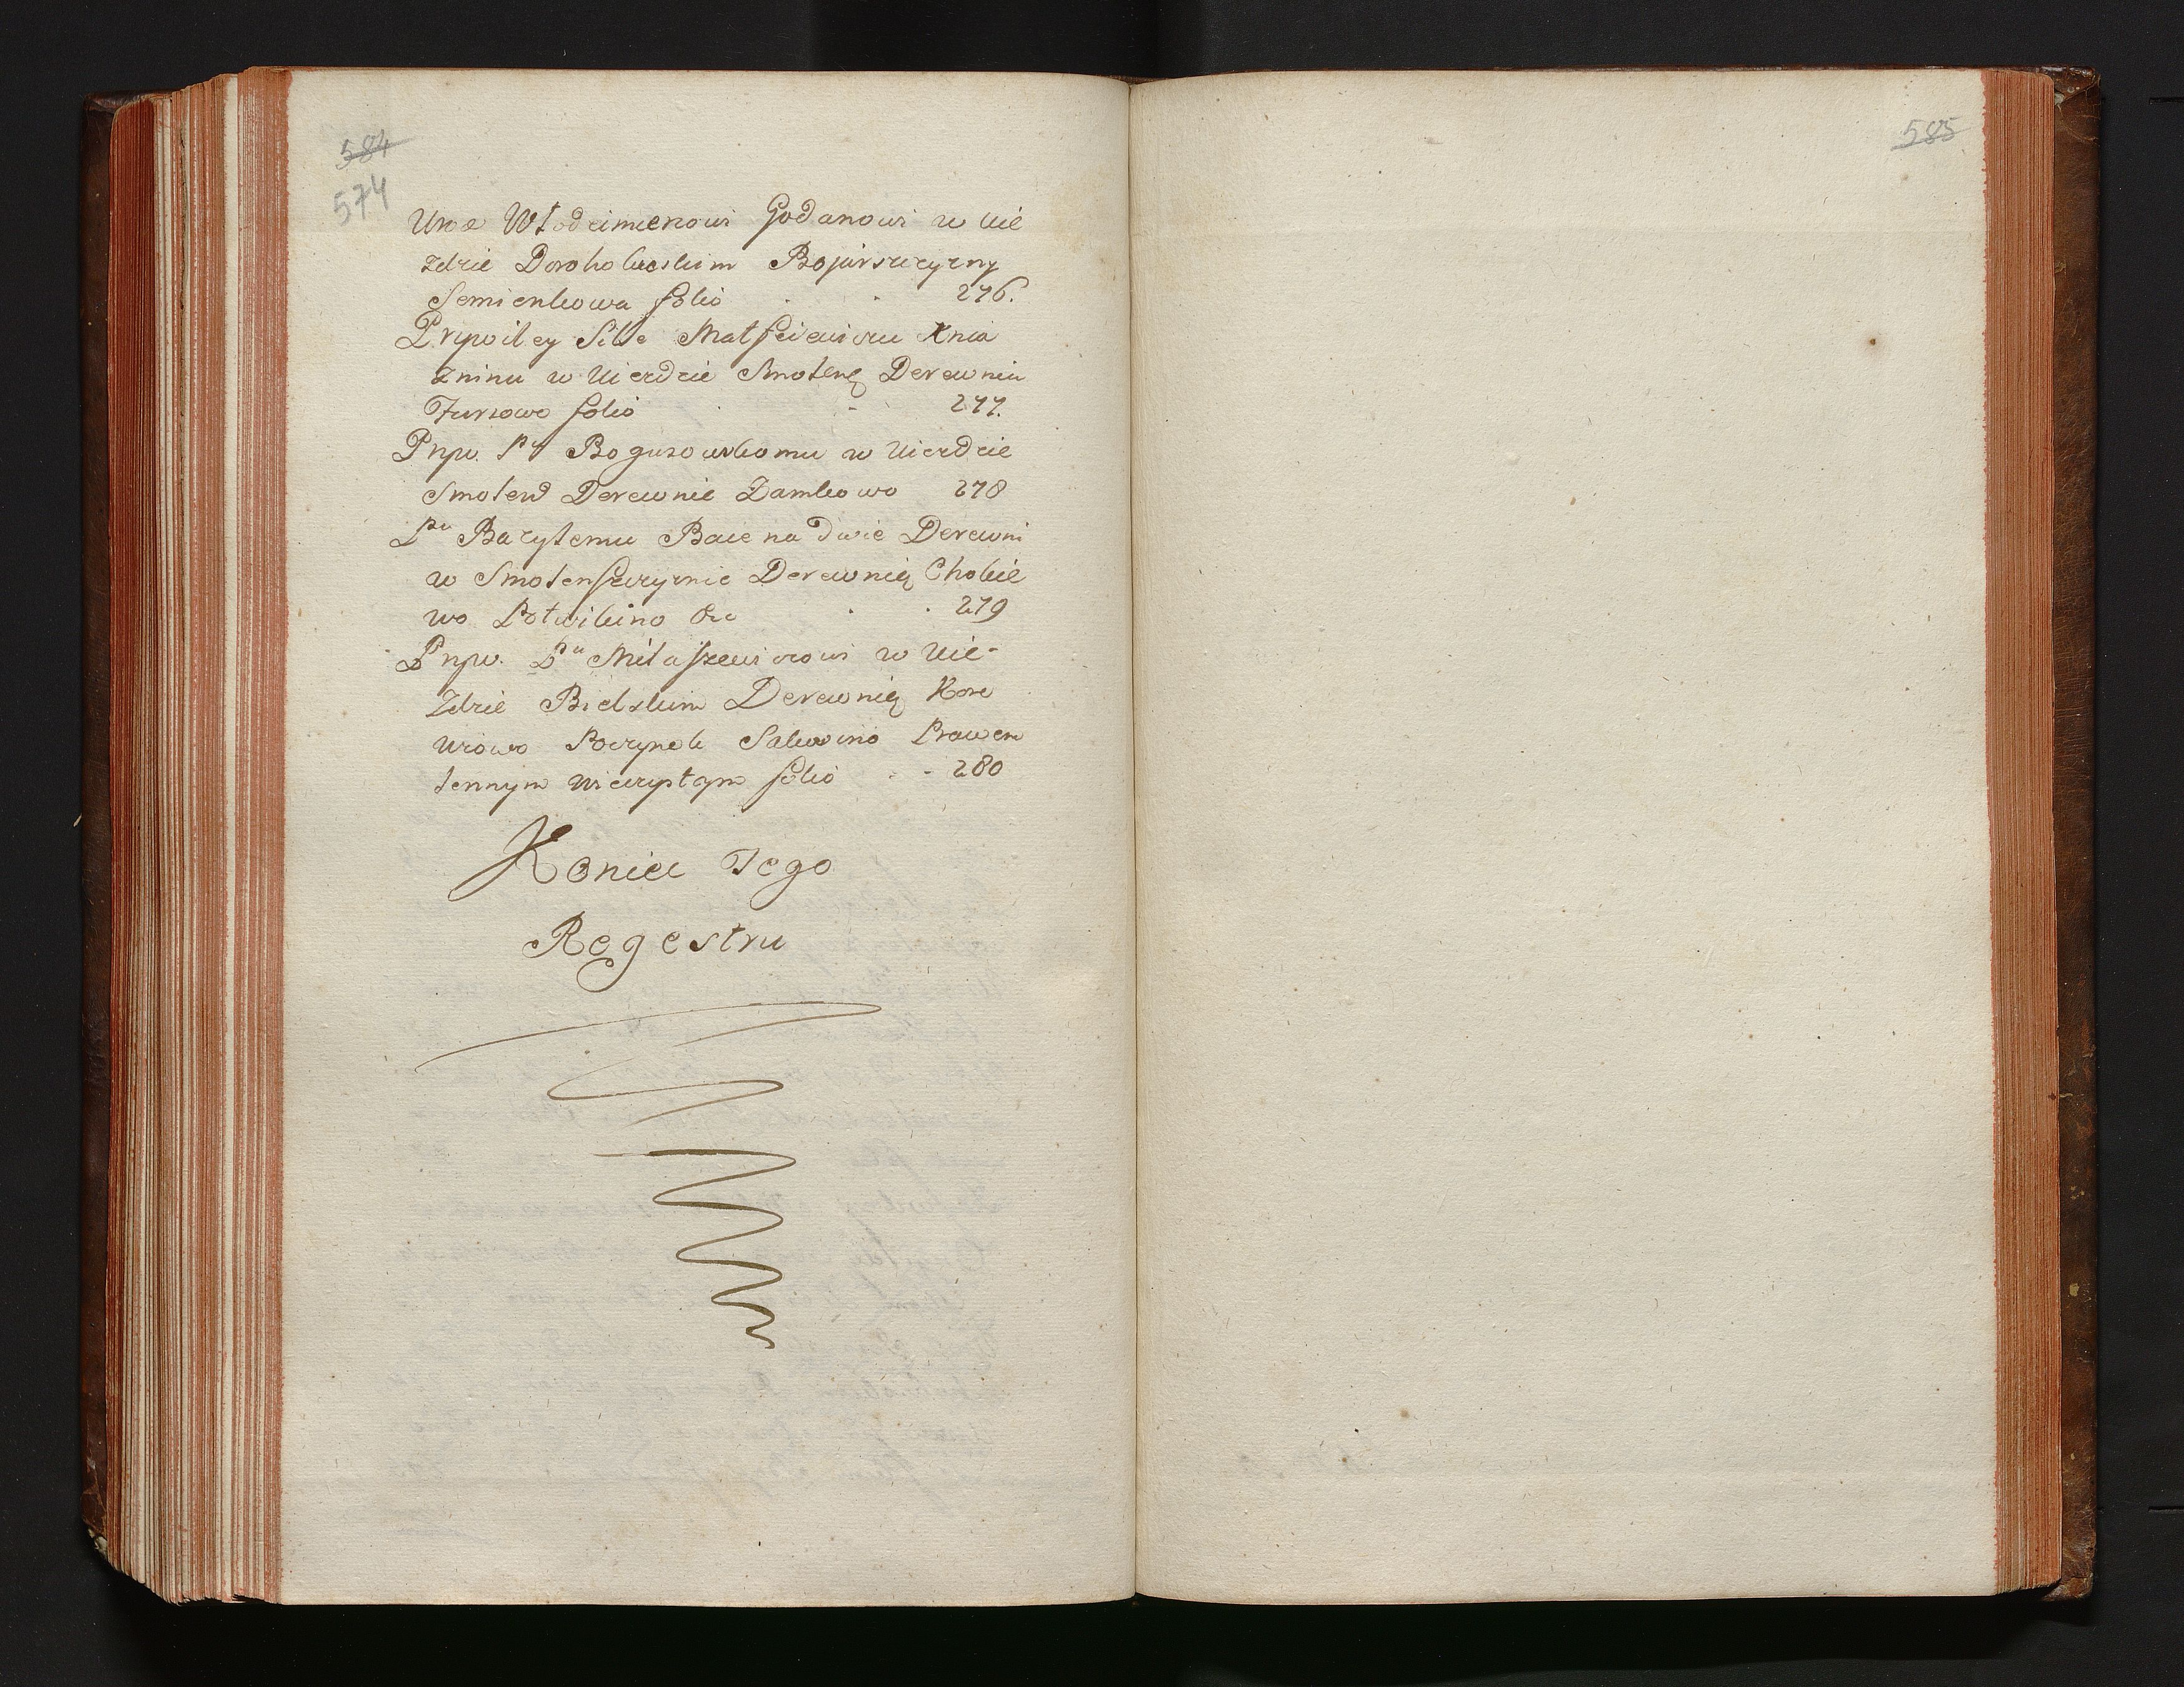 584
574
Uroz Włodzimierzowi Godanowi w Uie
zdzie Dorohobuskim Bojarszczyzny
Semienkowa folio 276.
Przywiley Sile Matfieiewiczu Knia
zninu w Uiezdzie Smolenſ Derewniu
Fursowo folio 277.
Przyw. Pu Boguszowskomu w Uiezdzie
Smolens Derewnie Zamkowo 278
Pu Bazylemu Bace na dwie Derewni
w Smolenſzczyznie Derewnię Chobie
wo Potwikino &c 279
Przyw. Pu Milaſzewiczowi w Uie-
zdzie Bielskim Derewnię Koze
urowo Poczynek Sakowino Prawem
lennym wieczystym folio 280
Koniec Tego
Regestru
585